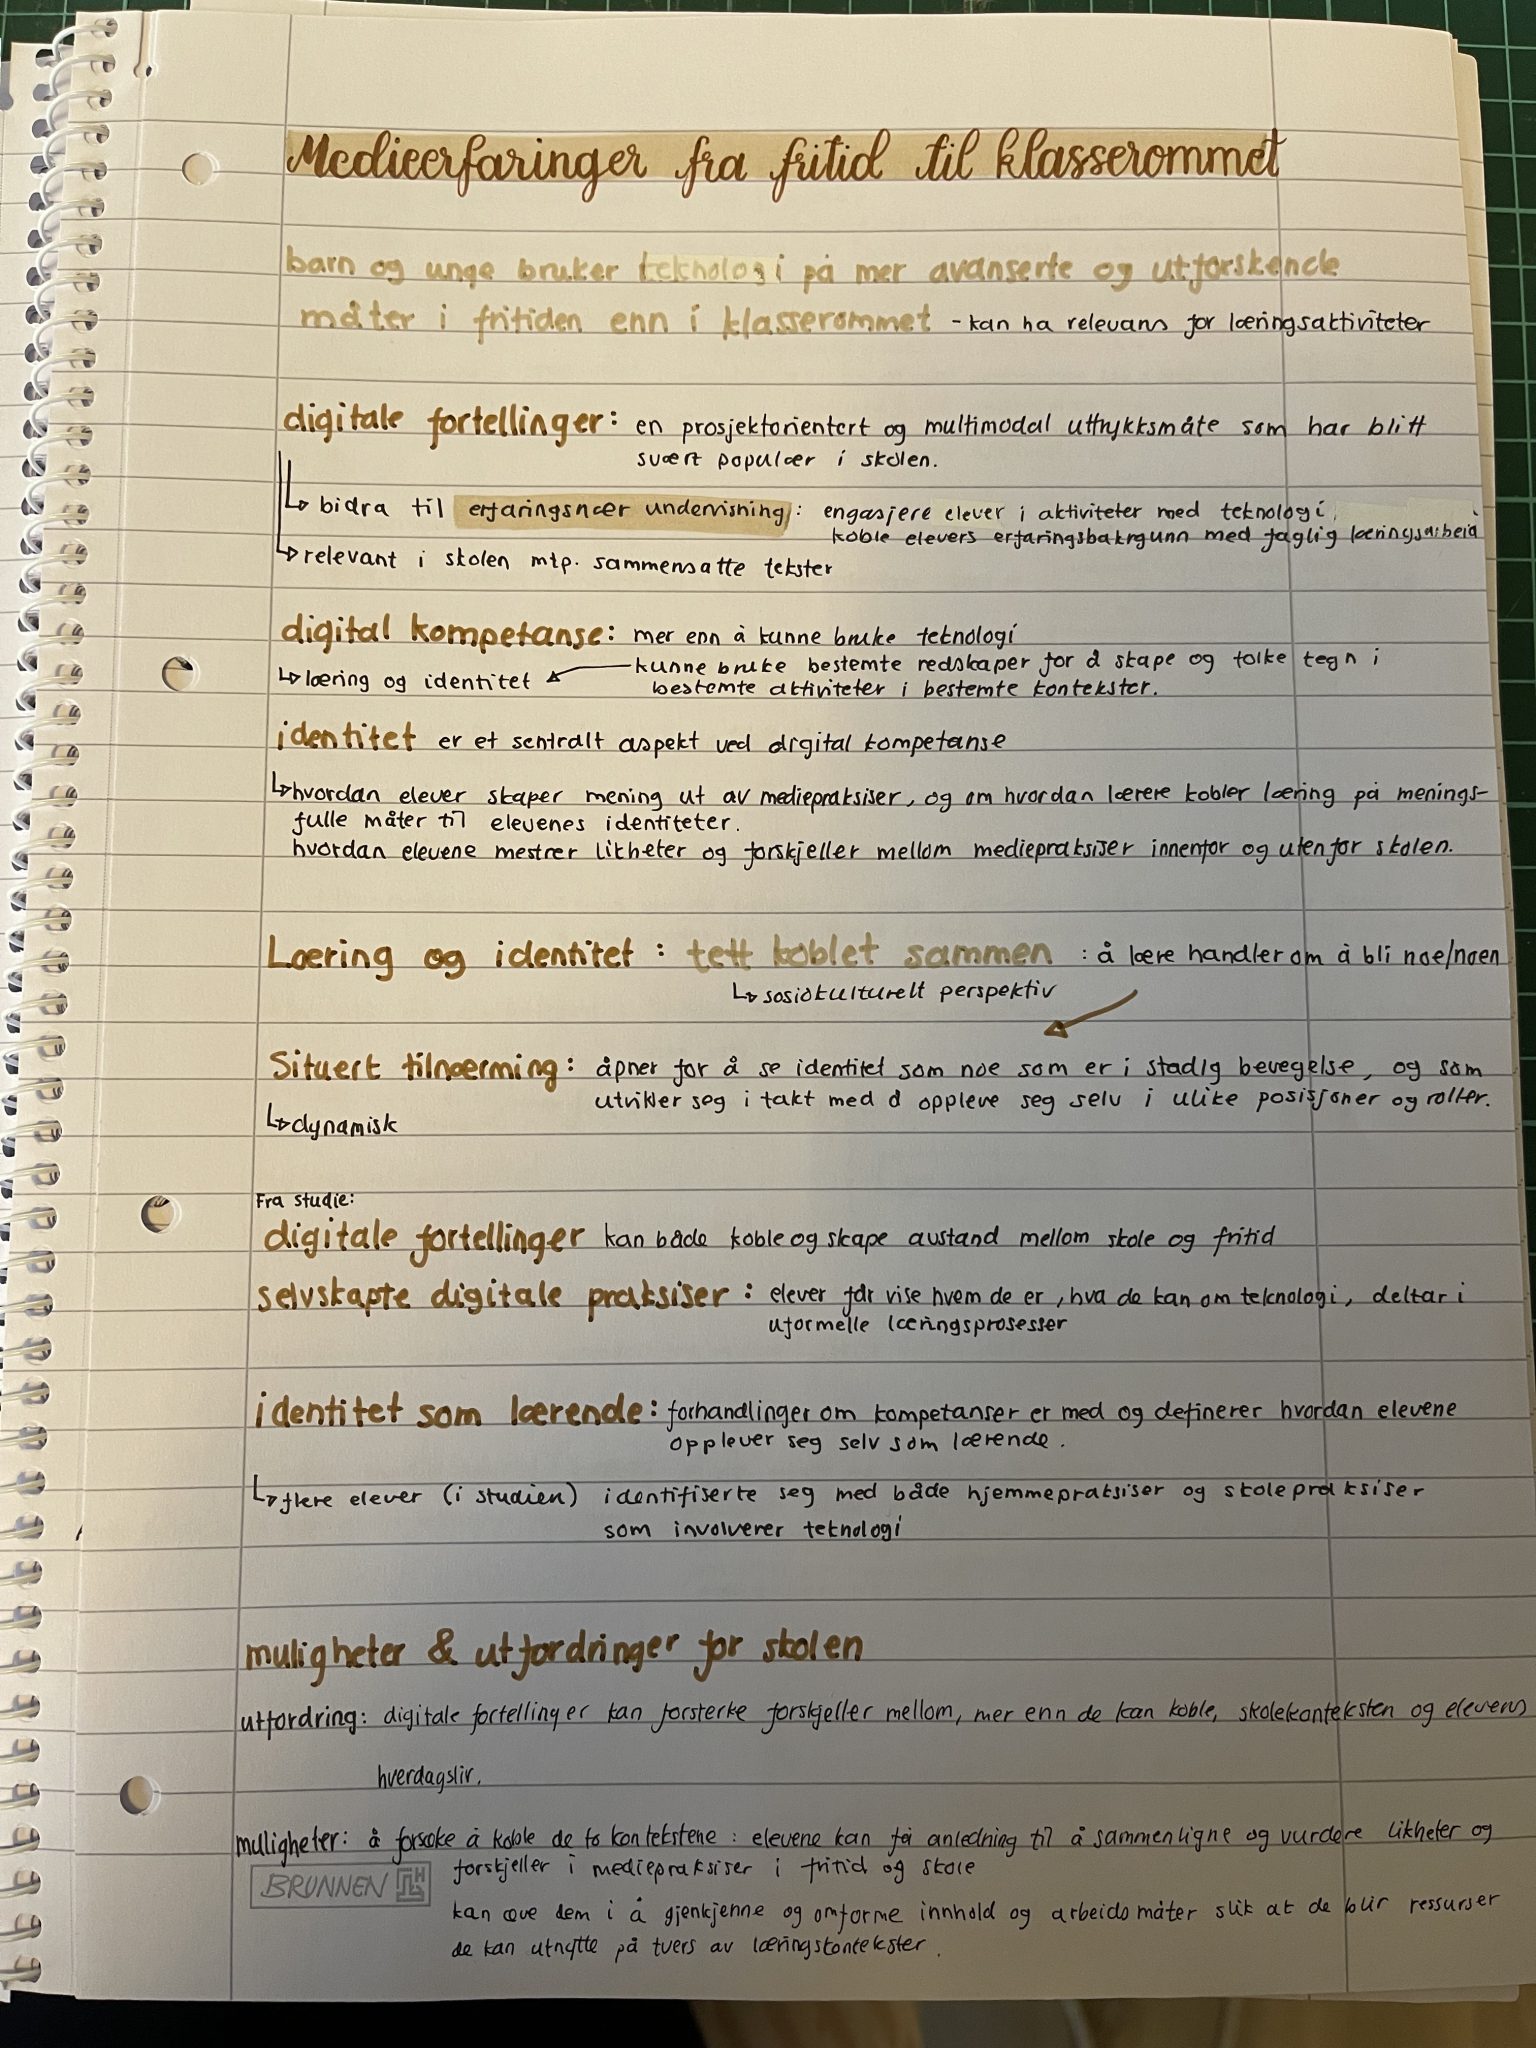 Medieerfaringer fra fritid til klasserommet
barn og unge bruker teknologi på mer avanserte og utforskende
måter i fritiden enn i klasserommet - kan ha relevans for læringsaktiviteter
digitale fortellinger: en prosjektorientert og multimodal uttrykksmåte som har blitt
svært populær i skolen.
↳ bidra til erfaringsnær undervisning: engasjere elever i aktiviteter med teknologi,
koble elevers erfaringsbakrgunn med faglig læringsarbeid
↳ relevant i skolen mtp. sammensatte tekster
digital kompetanse: mer enn å kunne bruke teknologi
kunne bruke bestemte redskaper for å skape og tolke tegn i
↳ læring og identitet ← bestemte aktiviteter i bestemte kontekster.
identitet er et sentralt aspekt ved digital kompetanse
↳ hvordan elever skaper mening ut av mediepraksiser, og om hvordan lærere kobler læring på menings-
fulle måter til elevenes identiteter.
hvordan elevene mestrer likheter og forskjeller mellom mediepraksiser innenfor og utenfor skolen.
Læring og identitet: tett koblet sammen : å lære handler om å bli noe/noen
↳ sosiokulturelt perspektiv
Situert tilnærming: åpner for å se identitet som noe som er i stadig bevegelse, og som
utvikler seg i takt med å oppleve seg selv i ulike posisjoner og roller.
↳ dynamisk
Fra studie:
digitale fortellinger kan både koble og skape avstand mellom skole og fritid
selvskapte digitale praksiser: elever får vise hvem de er, hva de kan om teknologi, deltar i
uformelle læringsprosesser
identitet som lærende: forhandlinger om kompetanser er med og definerer hvordan elevene
opplever seg selv som lærende.
↳ flere elever (i studien) identifiserte seg med både hjemmepraksiser og skolepraksiser
som involverer teknologi
muligheter & utfordringer for skolen
utfordring: digitale fortellinger kan forsterke forskjeller mellom, mer enn de kan koble, skolekonteksten og elevens
hverdagsliv.
muligheter: å forsøke å koble de to kontekstene : elevene kan få anledning til å sammenligne og vurdere likheter og
forskjeller i mediepraksiser i fritid og skole
BRUNNEN
kan øve dem i å gjenkjenne og omforme innhold og arbeidsmåter slik at de blir ressurser
de kan utnytte på tvers av læringskontekster.